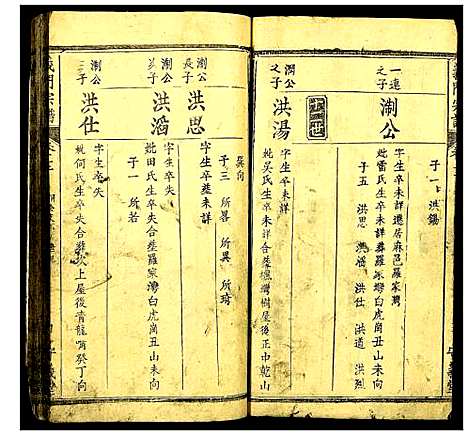 于一 洪錫
一連
之子
淛公
字生卒未詳遷居麻邑羅家灣
妣雷氏生卒未詳葬羅家灣白虎崗丑山未向
子五 洪思 洪滔 洪仕 洪道 洪烈
淛公
之子
洪湯
字生卒未詳
妣吳氏生卒未詳合葬灣樹屋後正中乾山
巽向
子三 所畧 所異 所琦
淛公
長子
洪思
字生卒葬未詳
淛公
洪滔
字生卒失
妣田氏生卒失合葬羅家灣白虎崗丑山未向
子一 所若
義門宗譜
淛公
三子
洪仕
字生卒失
妣何氏生卒失合葬坎上屋後青龍嘴癸丁向